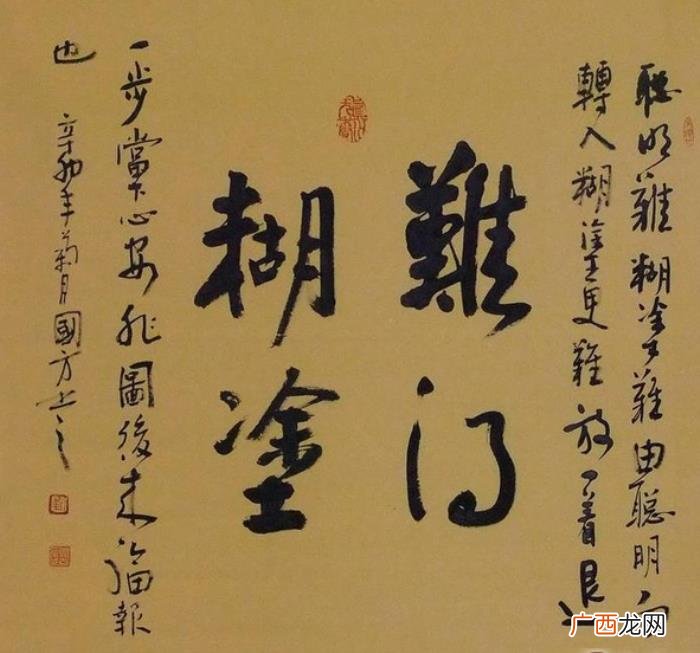 聰明難糊塗難由聰明而
轉入糊塗更難放一着退
難得
糊塗
一步當下心安非圖後來福報
也 辛卯年菊月國方书之
广西龙网